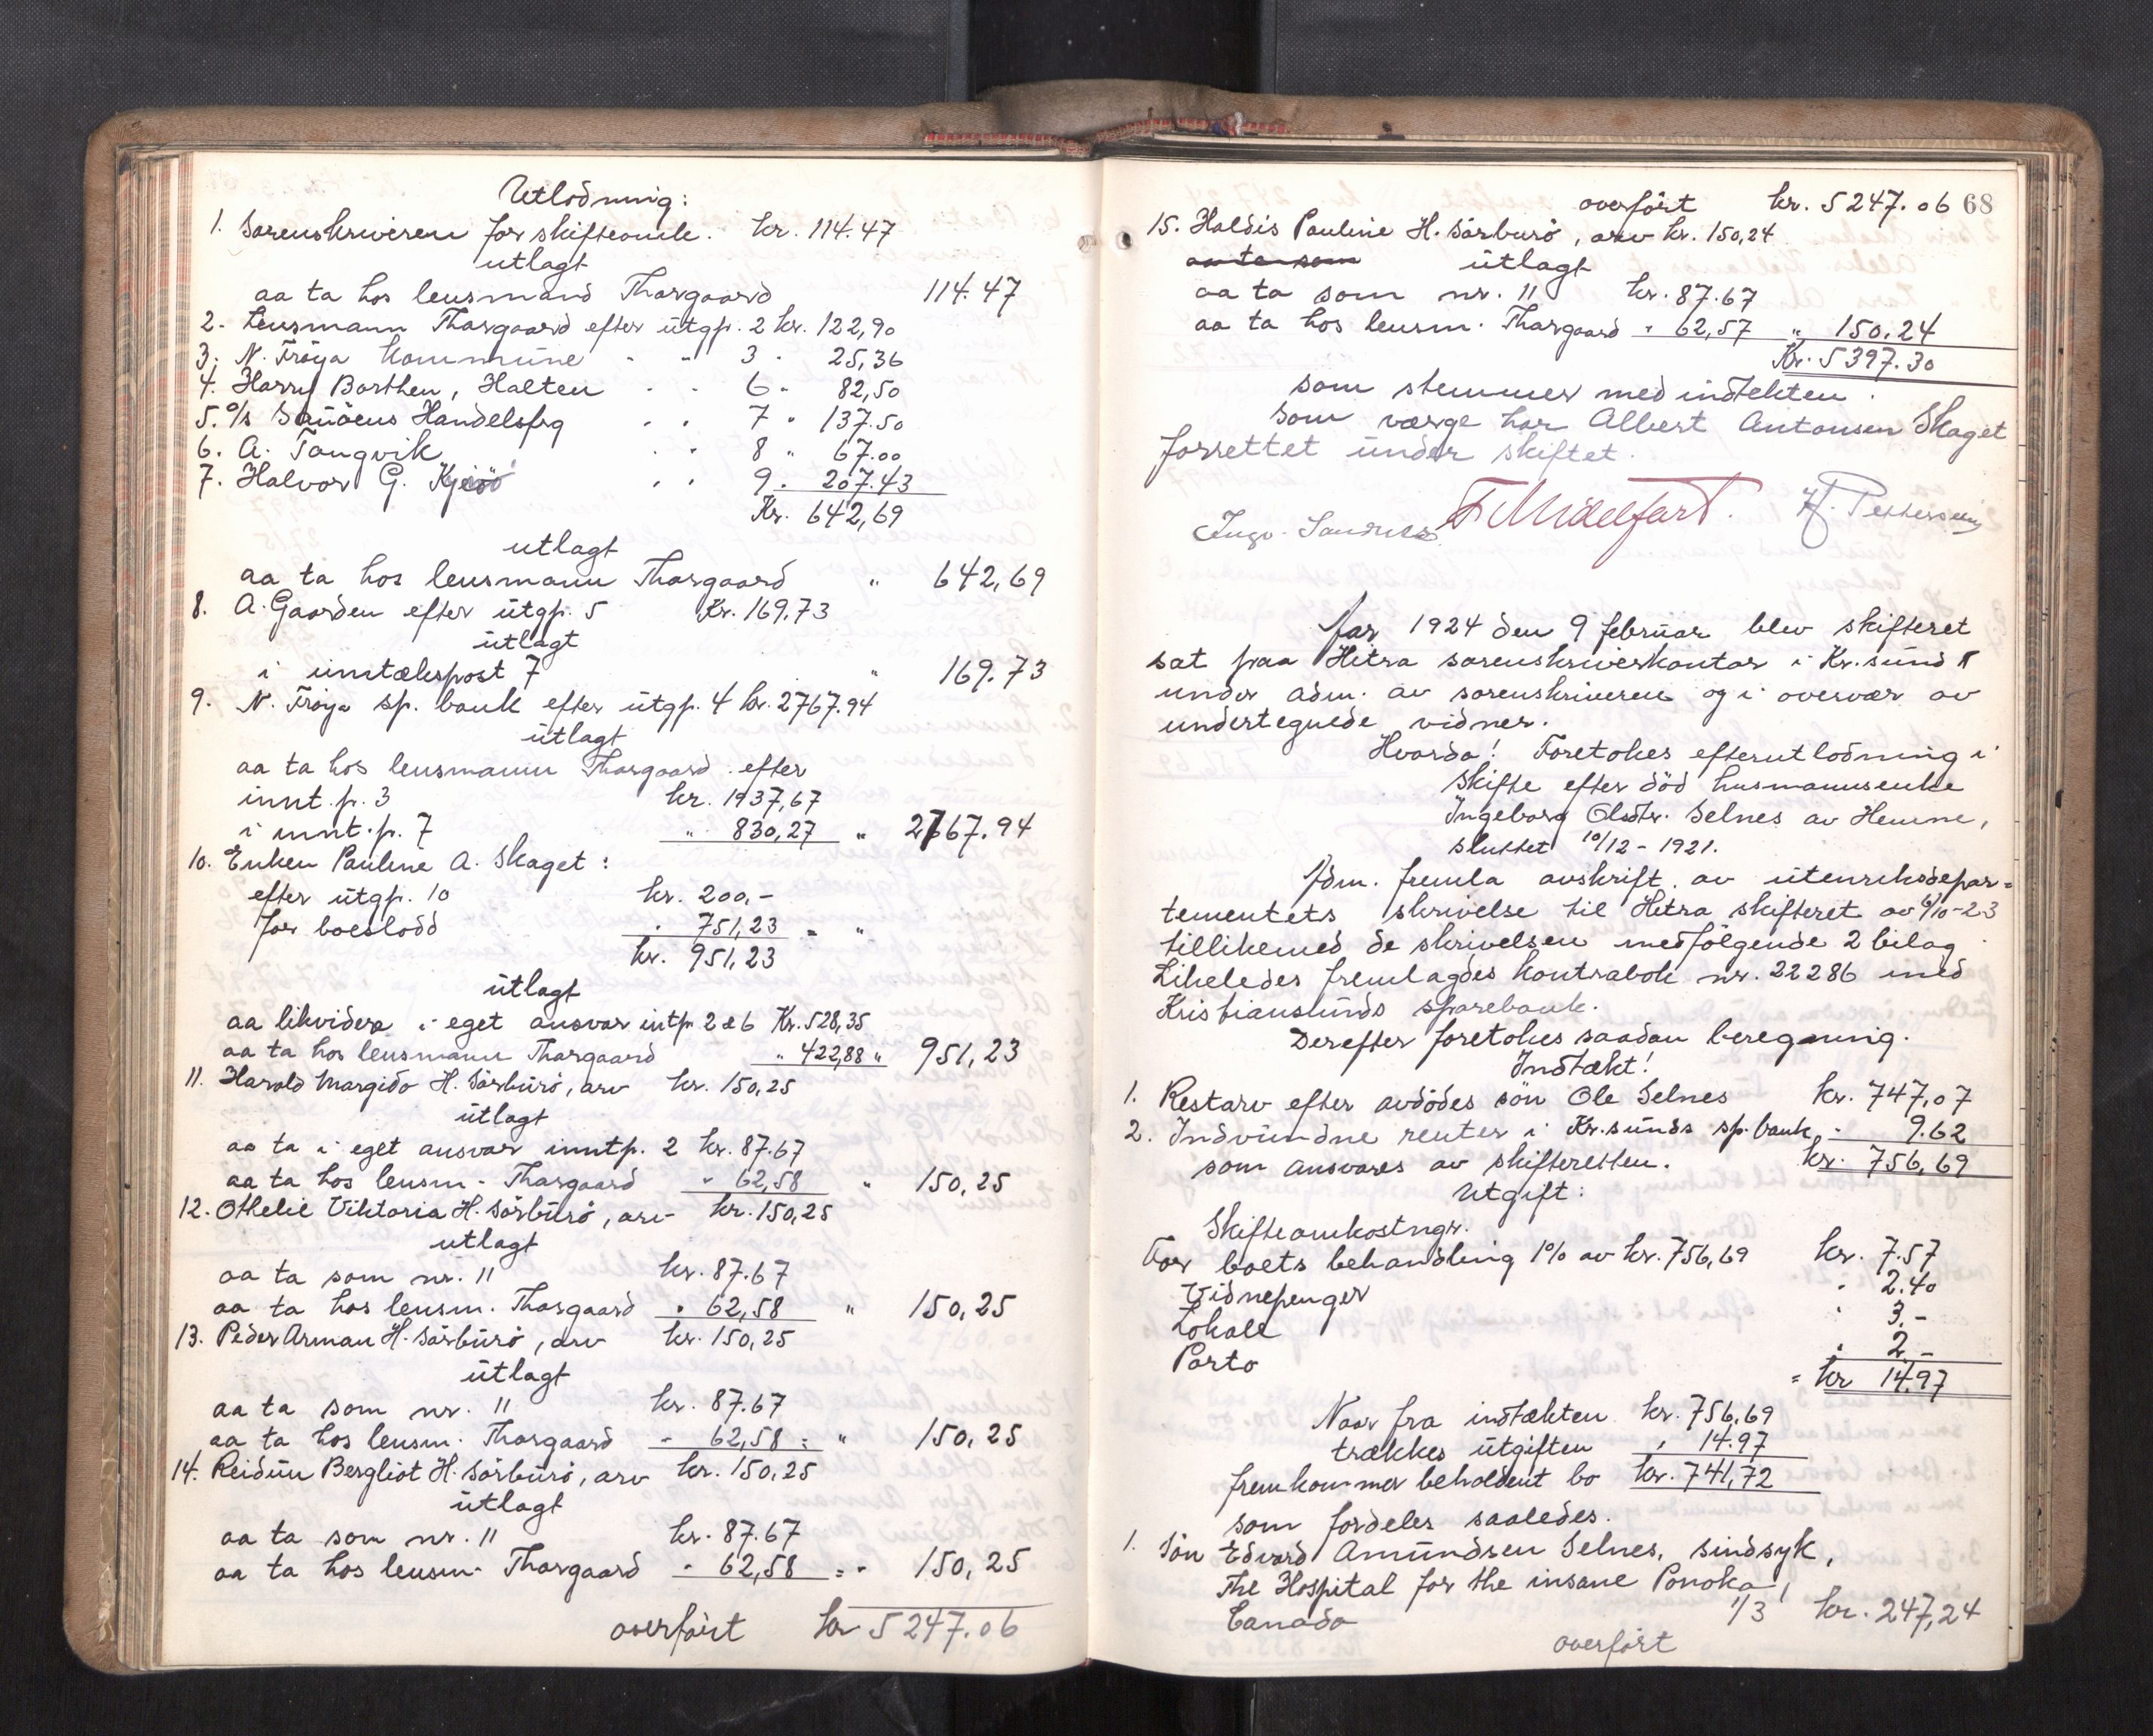 Utlodning:
1. Sorenskriveren for skifteomk. kr. 114.47
utlagt
aa ta hos lensmand Thorgaard 114.47
2. Lensmann Thorgaard efter utgp. 2 kr. 122,90
3. N. Fröya kommune " " 3 " 25,36
4. Harry Borthen, Halten " " 6 " 82,50
5. A/s Sauöens Handelsfrg " " 7 " 137.50
6. A. Tangvik " " 8 " 67.00
7. Halvor G. " " 9 " 207.43
Kr. 642,69
utlagt
aa ta hos lensmann Thorgaard " 642,69
8. A. Gaarden efter utgp. 5 Kr. 169.73
utlagt
i inntækspost 7 " 169.73
9. N. Fröya sp. bank efter utgp. 4 kr. 2767.94
utlagt
aa ta hos lensmann Thorgaard efter
innt. p. 3 kr. 1937,67
i innt. p. 7 " 830,27 " 2767.94
10. Enken Pauline A. Skaget:
efter utgp. 10 kr. 200,-
for boeslodd " 751,23 = "
kr. 951,23
utlagt
aa likvidere i eget ansvar intp. 2 & 6 Kr. 528,35
aa ta hos lensmann Thorgaard " 422,88 " 951,23
11. Harald Margido H. Sörburö, arv kr. 150,25
utlagt
aa ta i eget ansvar inntp. 2 kr. 87.67
aa ta hos lensm. Thorgaard " 62,58 " 150,25
12. Othelie Viktoria H. Sörburö, arv kr. 150,25
utlagt
aa ta som nr. 11 kr. 87.67
aa ta hos lensm. Thorgaard " 62,58 " 150,25
13. Peder Arman H. Sörburö, arv kr. 150,25
utlagt
aa ta som nr. 11 kr. 87.67
aa ta hos lensm. Thorgaard " 62,58 = " 150,25
14. Reidun Bergliot H. Sörburö, arv kr. 150,25
utlagt
aa ta som nr. 11 kr. 87.67
aa ta hos lensm. Thorgaard " 62,58 = " 150,25
overfört kr 5247.06
overfört kr. 5247.06 68
15. Haldis Pauline H. Sörburö, arv kr. 150,24
aa ta som utlagt
aa ta som nr. 11 kr. 87.67
aa ta hos lensm. Thorgaard " 62,57 " 150.24
Kr. 5397.30
som stemmer med indtekten.
Som værge har Albert Antonsen Skaget
forrettet under skiftet.
F Midelfart. H. Pettersen
Aar 1924 den 9 februar blev skifteret
sat paa Hitra sorenskriverkontor i Kr.sund N
under adm. av sorenskriveren og i overvær av
undertegnede vidner.
Hvorda! Foretokes efterutlodning i
skifte efter död husmannsenke
Ingeborg Olsdtr. Selnes av Hemne,
sluttet 10/12 - 1921.
Adm. fremla avskrift av utenriksdepar=
tementets skrivelse til Hitra skifteret av 6/10-23
tillikemed de skrivelsen medfölgende 2 bilag
Likeledes fremlagdes kontrabok nr. 22286 med
Kristiansunds sparebank.
Derefter foretokes saadan beregning.
Indtækt!
1. Restarv efter avdödes sön Ole Selnes kr. 747,07
2. Indvundne renter i Kr.sunds sp.bank " 9.62
som ansvares av skifteretten. kr. 756,69
Utgift:
Skifteomkostngr.
For boets behandling 1% av kr. 756,69 kr. 7.57
Vidnepenger " 2.40
Lokale " 3,-
Porto " 2,-
= kr 14.97
Naar fra indtækten kr. 756,69
trækkes utgiften " 14.97
fremkommer beholdent bo kr. 741,72
som fordeles saaledes.
1. Sön Edvard Amundsen Selnes, sindsyk,
The Hospital for the insane Ponoka,
Canada 1/3 kr. 247,24
overfört